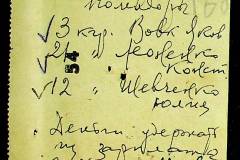 помидоры
✓3 кгр. Вовк Яков
✓21 " Леоненко
Конст.
54
✓12 " Шевченко
Юлия
Деньги удержать
из зарплаты